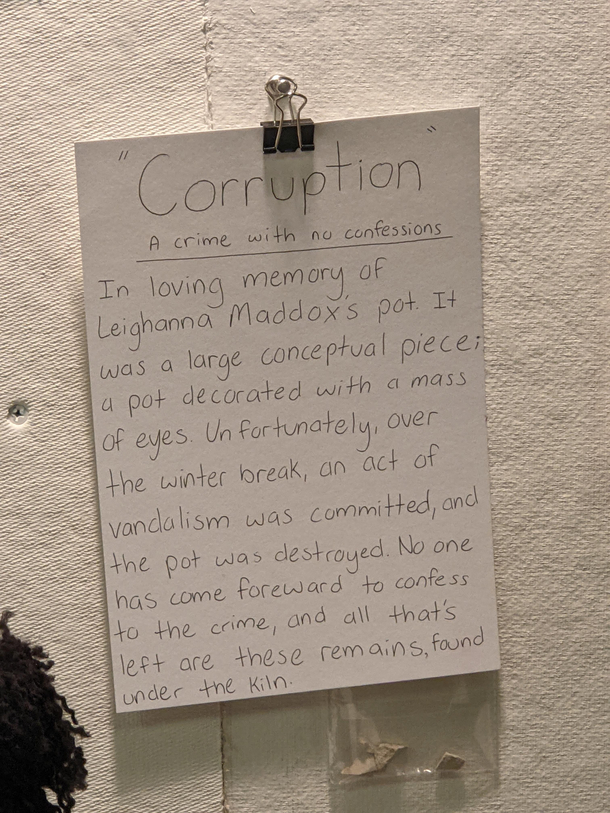 "Corruption"
A crime with no confessions
In loving memory of
Leighanna Maddox's pot. It
was a large conceptual piece;
a pot decorated with a mass
of eyes. Unfortunately, over
the winter break, an act of
vandalism was committed, and
the pot was destroyed. No one
has come foreward to confess
to the crime, and all that's
left are these remains, found
under the kiln.